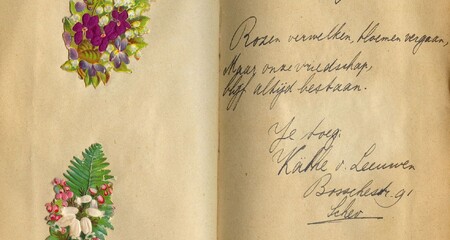 Rozen verwelken, bloemen vergaan,
Maar onze vriedschap,
blijf altijd bestaan.
Je toeg.
Käthe v. Leeuwen
Bosschestr. 91
Schev